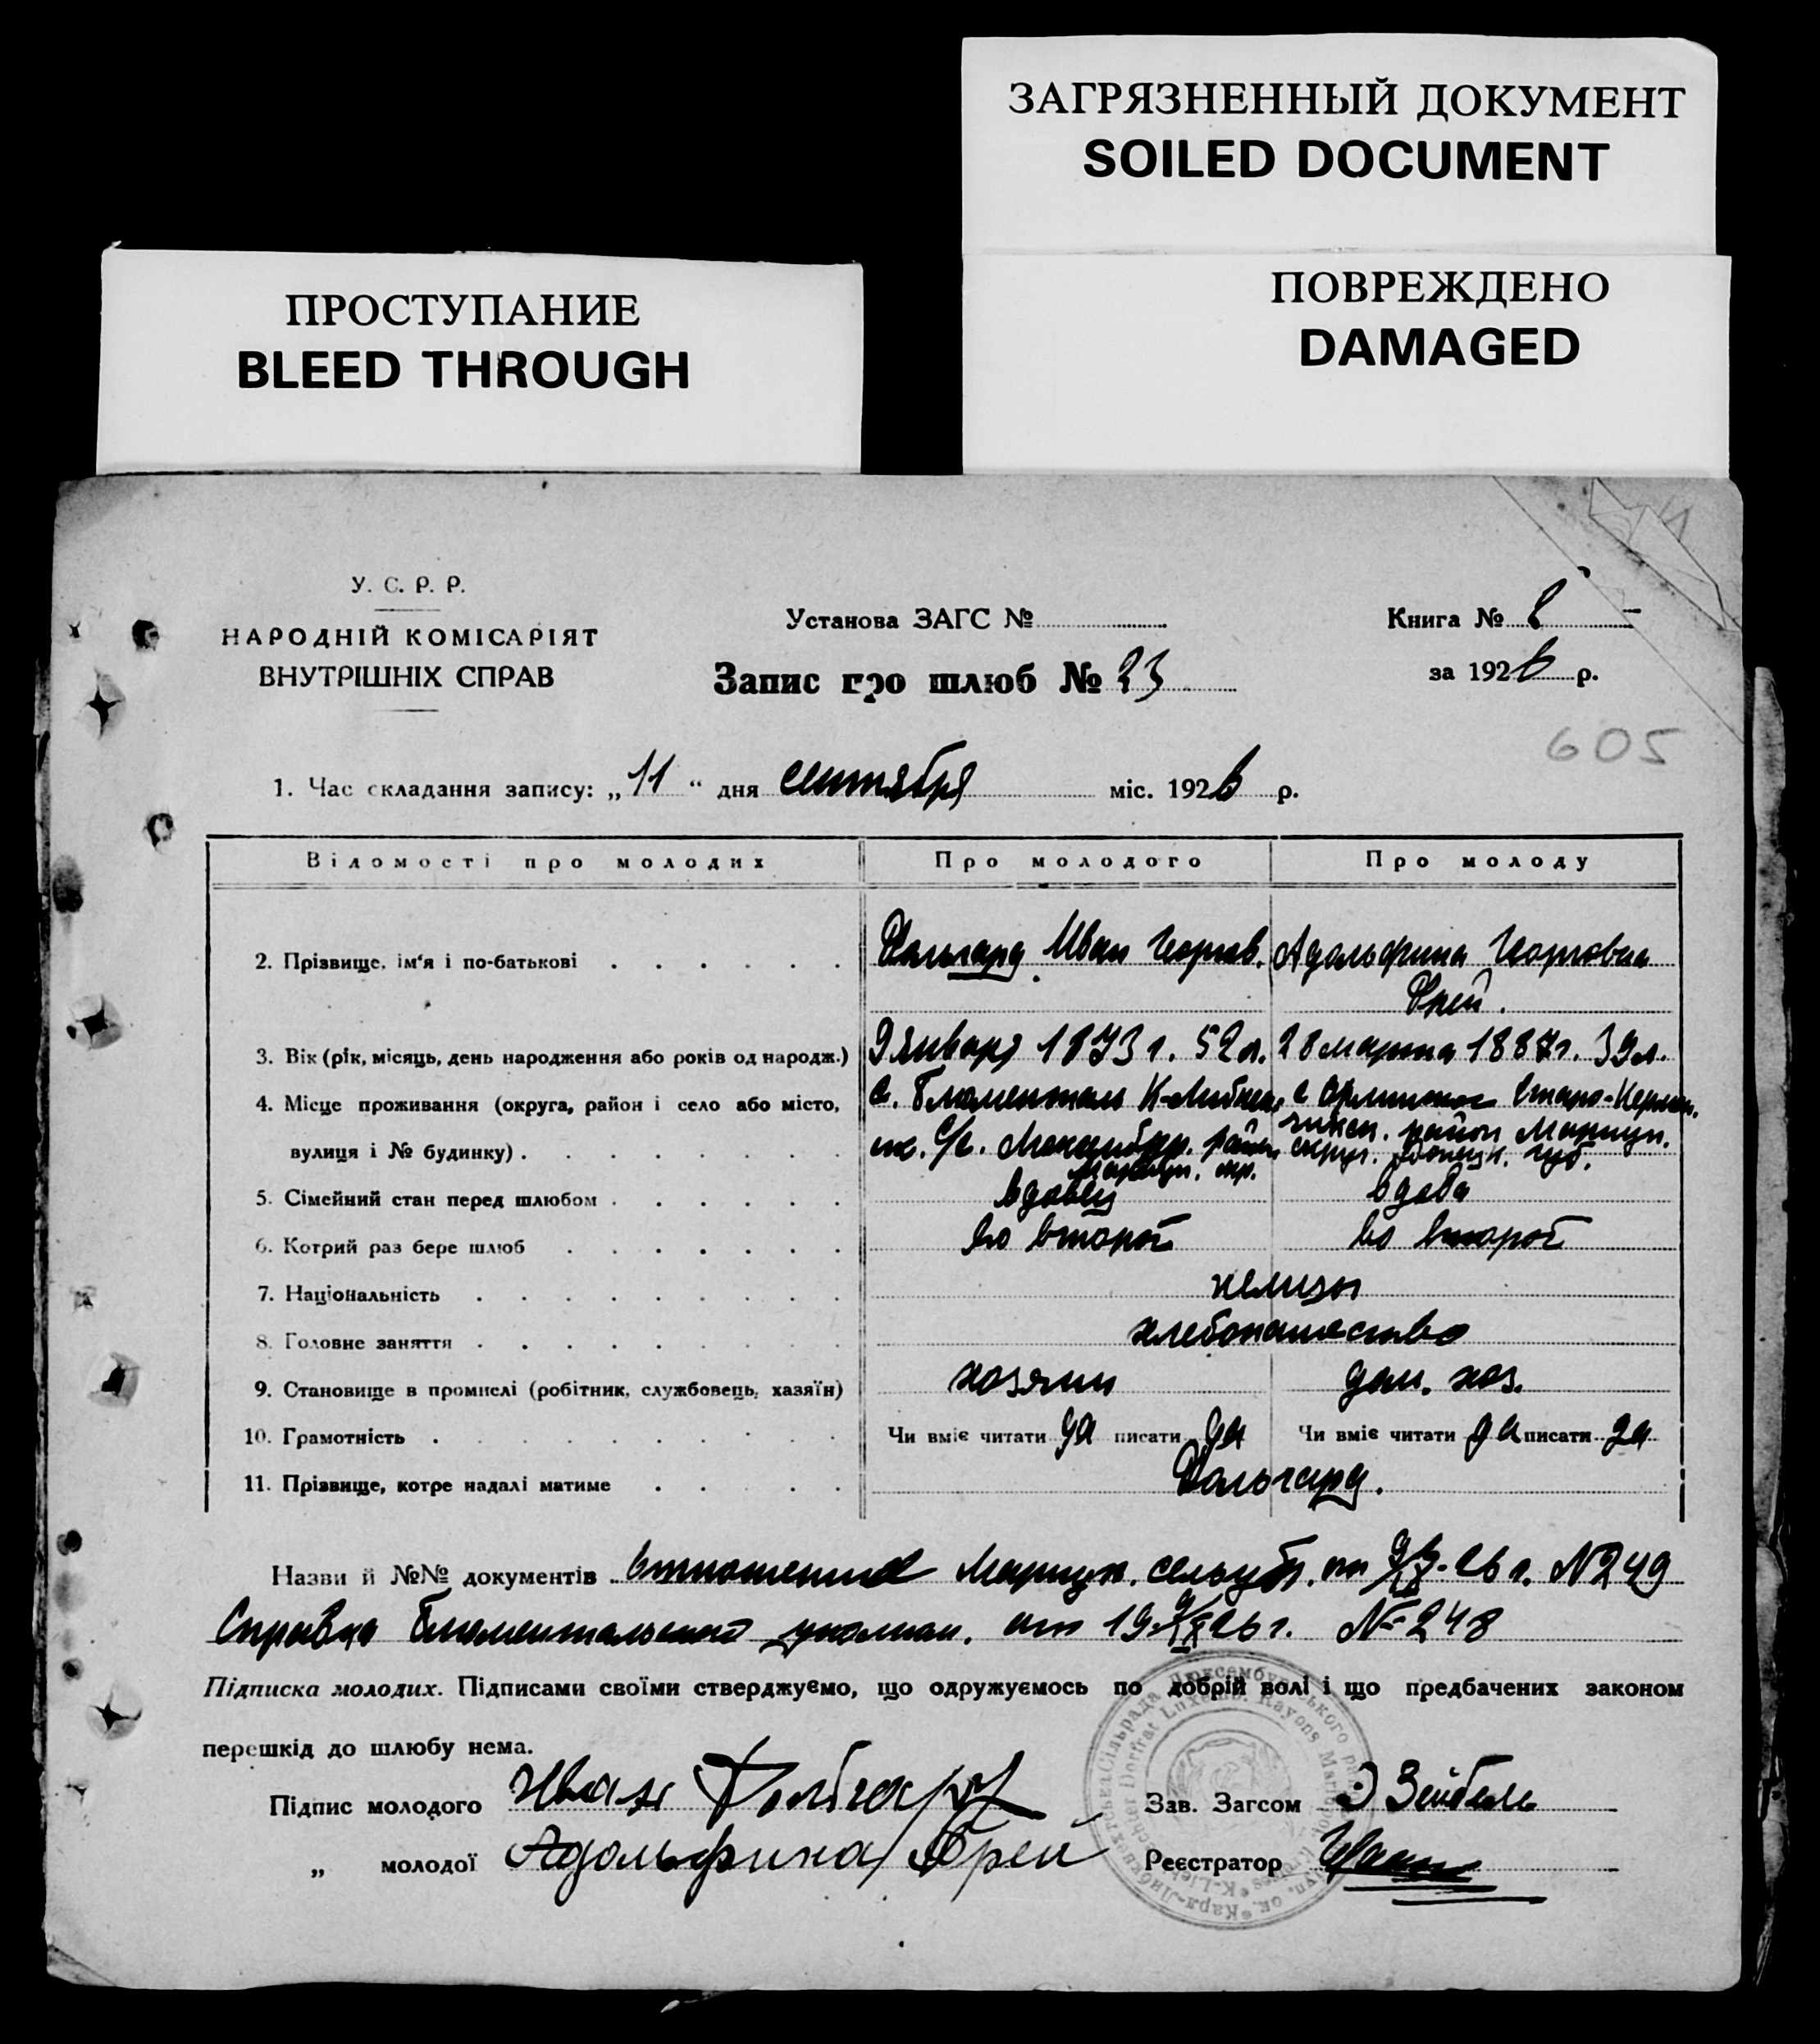 ЗАГРЯЗНЕННЫЙ ДОКУМЕНТ
SOILED DOCUMENT
ПРОСТУПАНИЕ
BLEED THROUGH
ПОВРЕЖДЕНО
DAMAGED
У. С. Р. Р.
НАРОДНІЙ КОМІСАРІЯТ
ВНУТРІШНІХ СПРАВ
Установа ЗАГС №
Запис про шлюб № 23
Книга №
за 1926 р.
605
1. Час складання запису: „11“ дня сентября міс. 1926 р.
Відомості про молодих Про молодого Про молоду
2. Прізвище, ім'я і по-батькові Дальгард Иван Георгов. Адольфина Георговна
Фрей.
3. Вік (рік, місяць, день народження або років од народж.) 9 января 1873 г. 52 л. 28 марта 1887 г. 39 л.
4. Місце проживання (округа, район і село або місто, с. Блюменталь К-Либкнех с Старо-Кермен.
вулиця і № будинку) с/с. район район Мариуп.
Мариуп. окр. округ. Донецк. губ.
5. Сімейний стан перед шлюбом вдовец вдова
6. Котрий раз бере шлюб во второй во второй
7. Національність немцы
8. Головне заняття хлебопашество
9. Становище в промислі (робітник, службовець, хазяїн) хозяин дом. хоз.
10. Грамотність Чи вміє читати да писати да Чи вміє читати да писати да
11. Прізвище, котре надалі матиме Дальгард.
Назви й №№ документів отношение Мариуп. от 9/IX-26 г. N 249
Справка Блюментальской уполном. от 26 г. № 248
Підписка молодих. Підписами своїми стверджуємо, що одружуємось по добрій волі і що предбачених законом
перешкід до шлюбу нема.
Підпис молодого Иван Дольгард Зав. Загсом Э Зейбель
„ молодої Адольфина Фрей Реєстратор